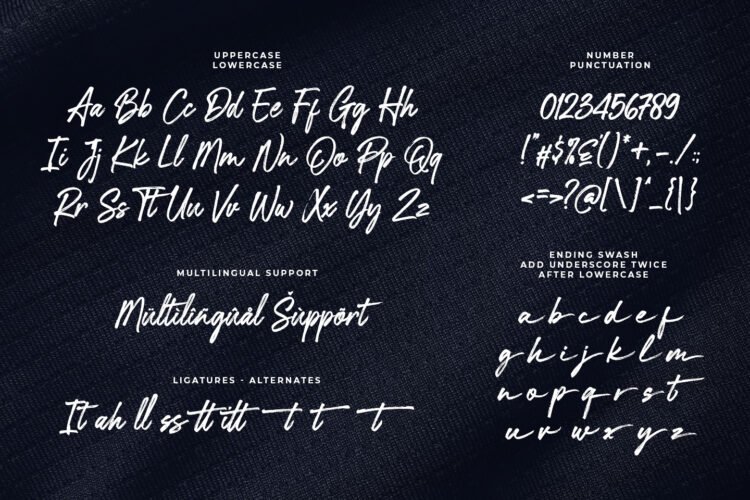 UPPERCASE
LOWERCASE
Aa Bb Cc Dd Ee Ff Gg Hh
Ii Jj Kk Ll Mm Nn Oo Pp Qq
Rr Ss Tt Uu Vv Ww Xx Yy Zz
NUMBER
PUNCTUATION
0123456789
!"#$%&'()*+,-./:;
<=>?@[\]^_{|}
MULTILINGUAL SUPPORT
Mültilîñgûàl Šùppört
LIGATURES - ALTERNATES
It ah ll ss tt itt t t t
ENDING SWASH
ADD UNDERSCORE TWICE
AFTER LOWERCASE
a b c d e f
g h i j k l m
n o p q r s t
u v w x y z